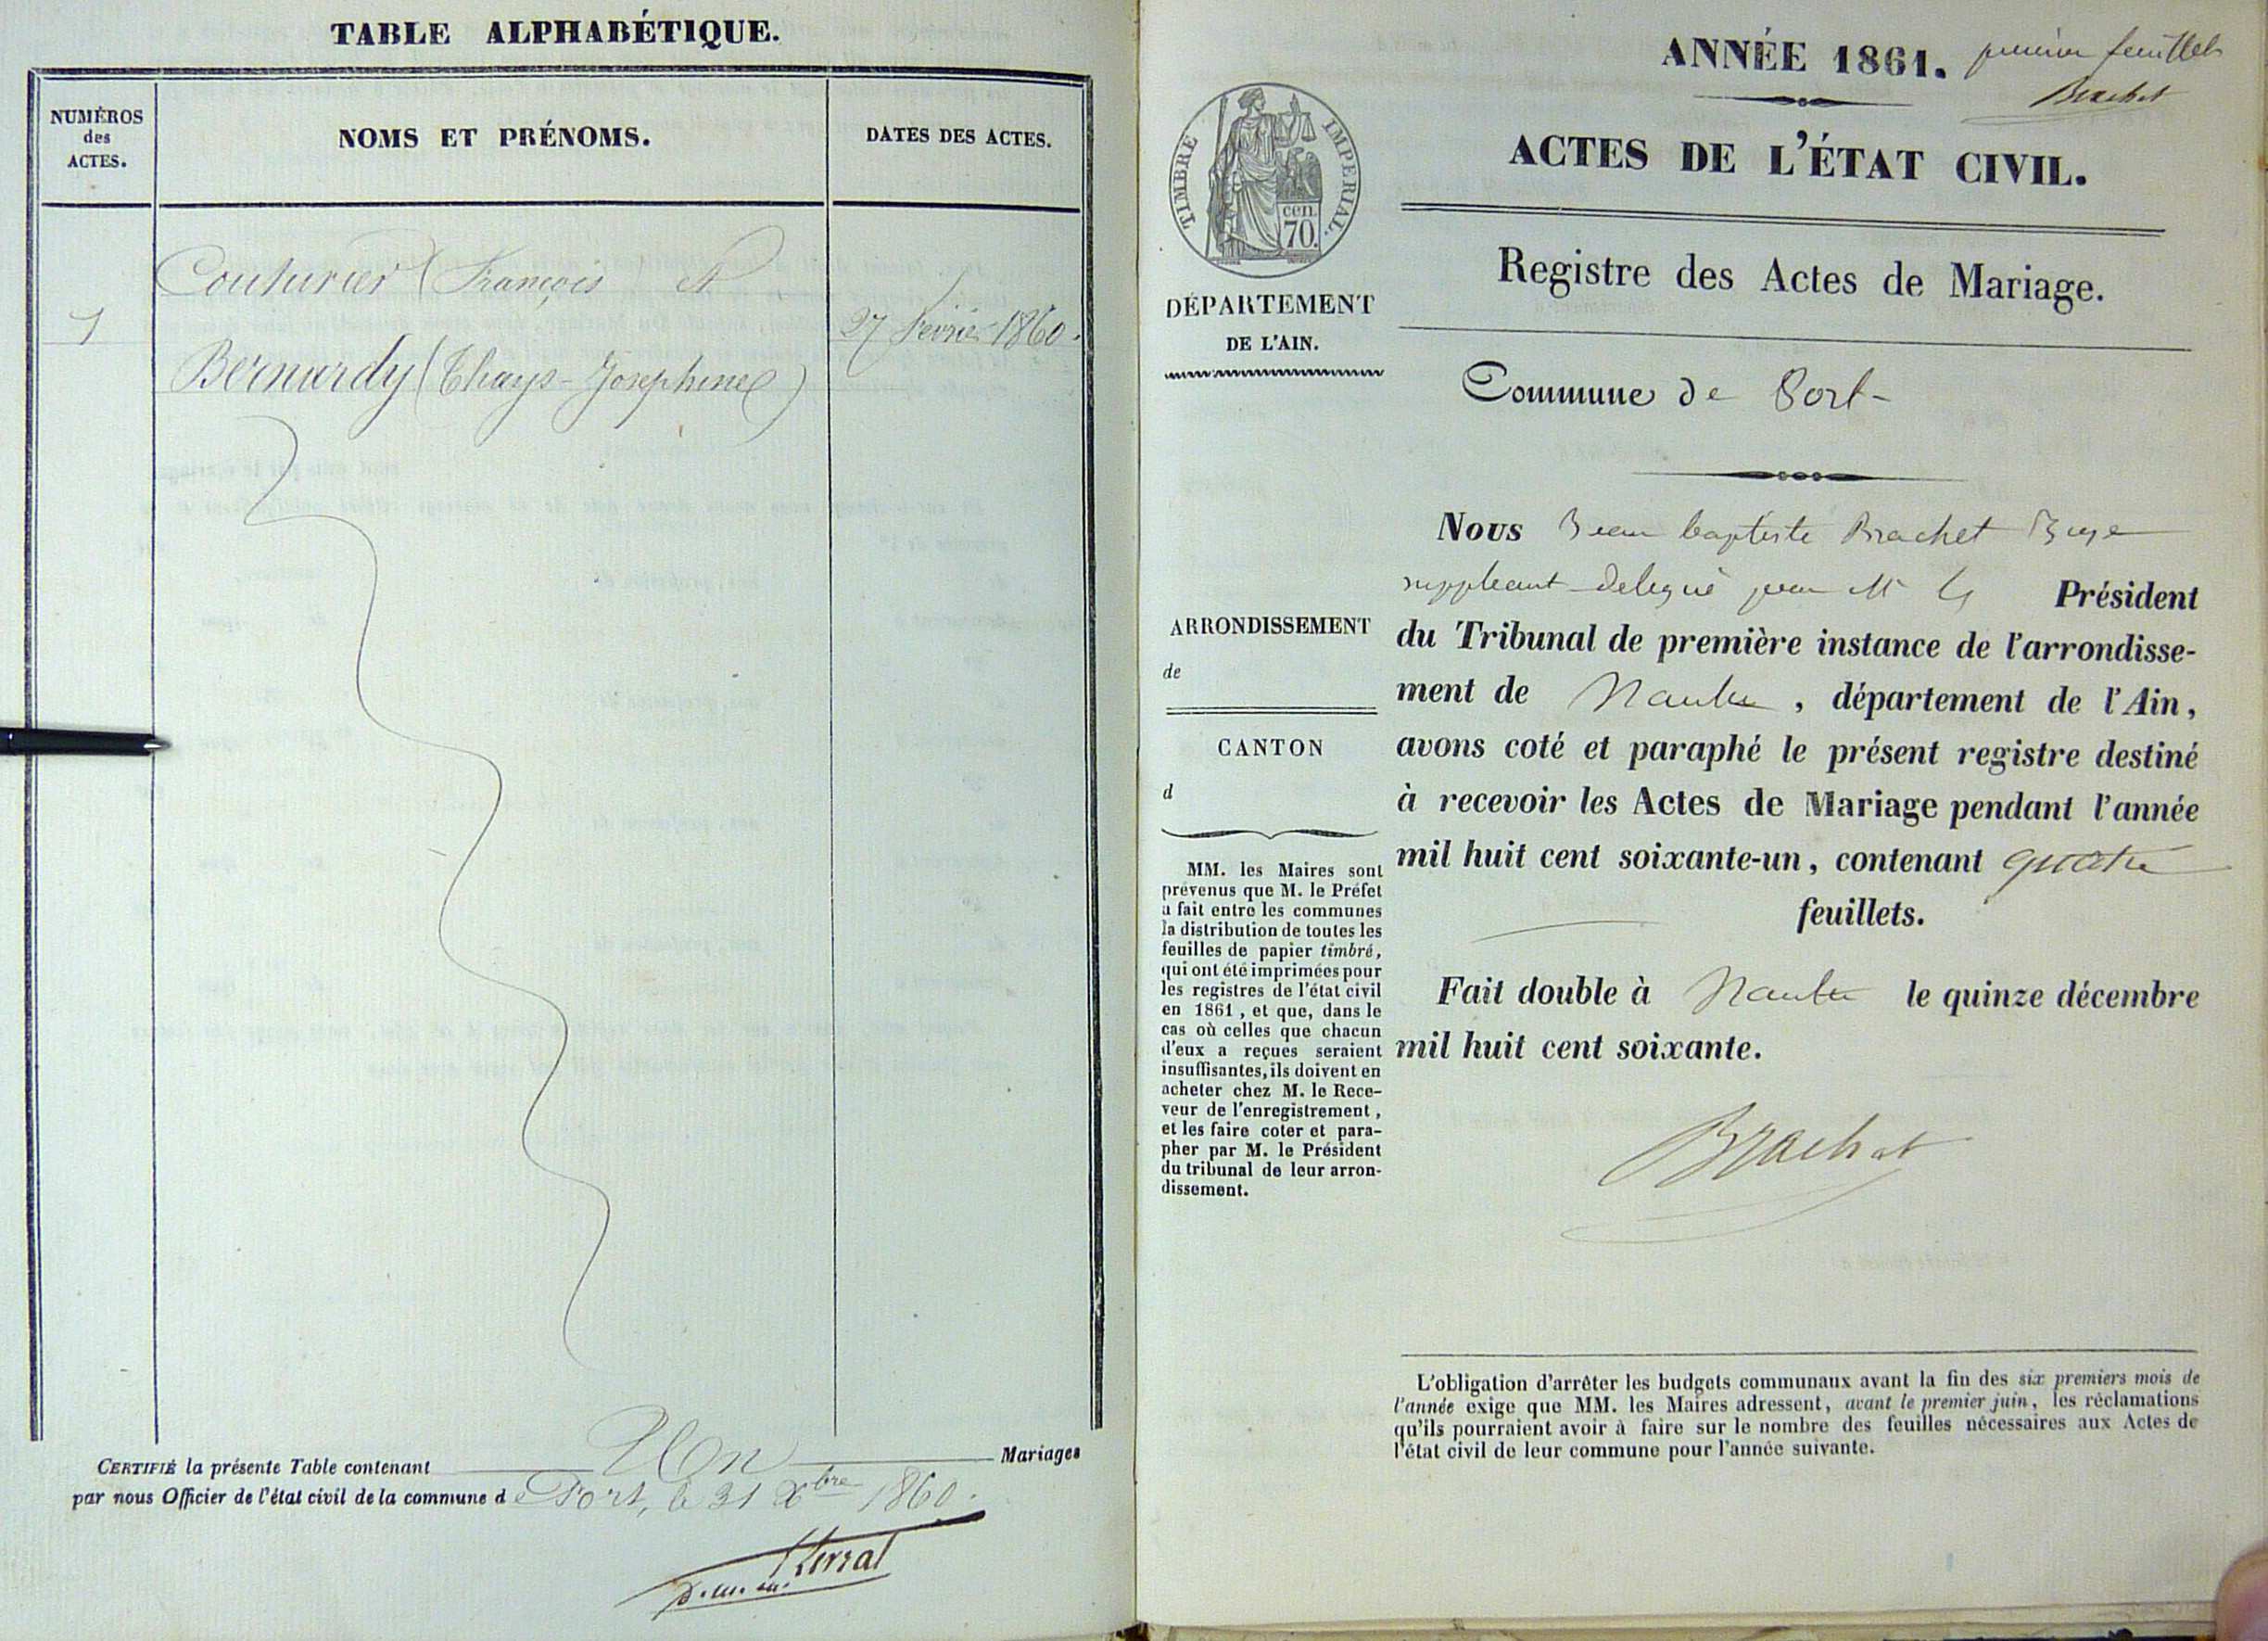 TABLE ALPHABÉTIQUE.
NUMÉROS
des
ACTES.
NOMS ET PRÉNOMS.
DATES DES ACTES.
Couturier (François et
1
27 Février 1860.
Bernardy (Thays-Josephine)
CERTIFIÉ la présente Table contenant Un Mariages
par nous Officier de l'état civil de la commune de Port, le 31 Xbre 1860.
ANNÉE 1861. premier feuillet
Brachet
ACTES DE L'ÉTAT CIVIL.
Registre des Actes de Mariage.
Commune de Port
TIMBRE IMPERIAL.
cen.
70.
DÉPARTEMENT
DE L'AIN.
ARRONDISSEMENT
de
CANTON
d
MM. les Maires sont
prévenus que M. le Préfet
a fait entre les communes
la distribution de toutes les
feuilles de papier timbré,
qui ont été imprimées pour
les registres de l'état civil
en 1861, et que, dans le
cas où celles que chacun
d'eux a reçues seraient
insuffisantes, ils doivent en
acheter chez M. le Rece-
veur de l'enregistrement,
et les faire coter et para-
pher par M. le Président
du tribunal de leur arron-
dissement.
Nous Jean baptiste Brachet Juge
suppleant delegué par M le Président
du Tribunal de première instance de l'arrondisse-
ment de Nantua, département de l'Ain,
avons coté et paraphé le présent registre destiné
à recevoir les Actes de Mariage pendant l'année
mil huit cent soixante-un, contenant quatre
feuillets.
Fait double à Nantua le quinze décembre
mil huit cent soixante.
Brachet
L'obligation d'arrêter les budgets communaux avant la fin des six premiers mois de
l'année exige que MM. les Maires adressent, avant le premier juin, les réclamations
qu'ils pourraient avoir à faire sur le nombre des feuilles nécessaires aux Actes de
l'état civil de leur commune pour l'année suivante.